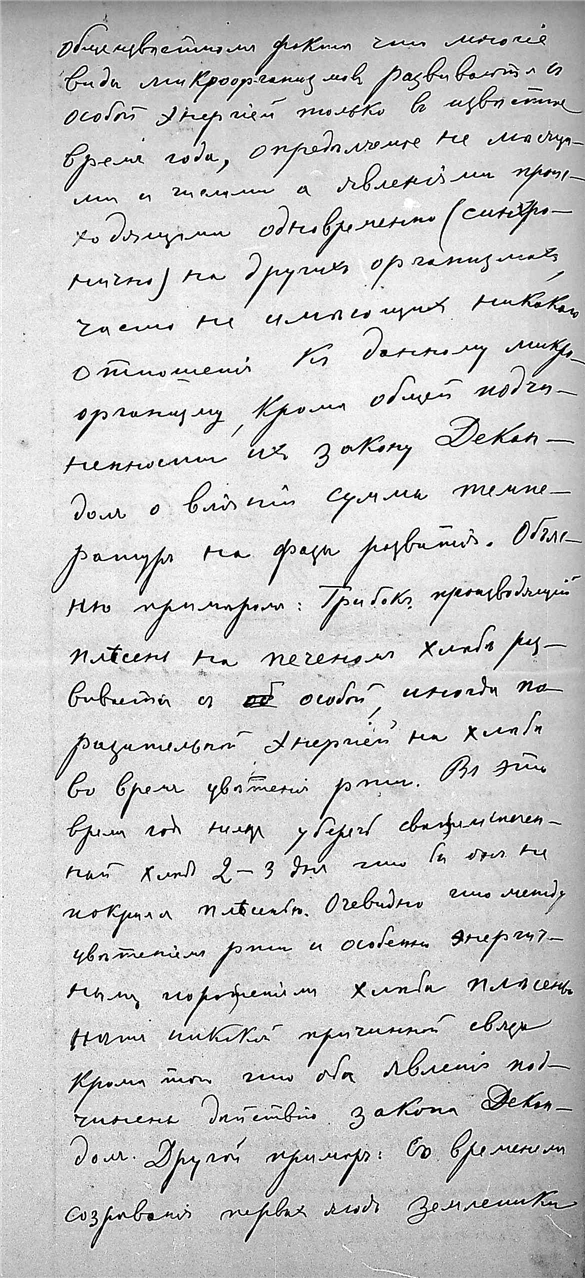 Общеизвѣстный фактъ что многіе
виды микроорганизмовъ развиваются съ
особой энергіей только въ извѣстное
время года, опредѣляемое не мѣсяца-
ми и числами а явленіями проис-
ходящими одновременно (синхро-
нично) на другихъ организмахъ,
часто не имѣющихъ никакого
отношенія къ данному микро-
организму, кромѣ общей подчи-
ненности ихъ закону Декан-
доля о вліяніи суммы темпе-
ратуръ на фазы развитія. Объяс-
ню примѣромъ: Грибокъ производящій
плѣсень на печеномъ хлѣбѣ раз-
вивается съ особой, иногда по-
разительной энергіей на хлѣбѣ
во время цвѣтенія ржи. Въ это
время года нельзя уберечь свѣжеиспечен-
ный хлѣбъ 2-3 дня что бы онъ не
покрылся плѣсенью. Очевидно что между
цвѣтеніемъ ржи и особенно энергич-
нымъ порощеніемъ хлѣба плѣсенью
нѣтъ никакой причинной связи
кромѣ того что оба явленія под-
чинены дѣйствію закона Декан-
доля. Другой примѣръ: Со временемъ
созрѣванія первыхъ ягодъ земленики